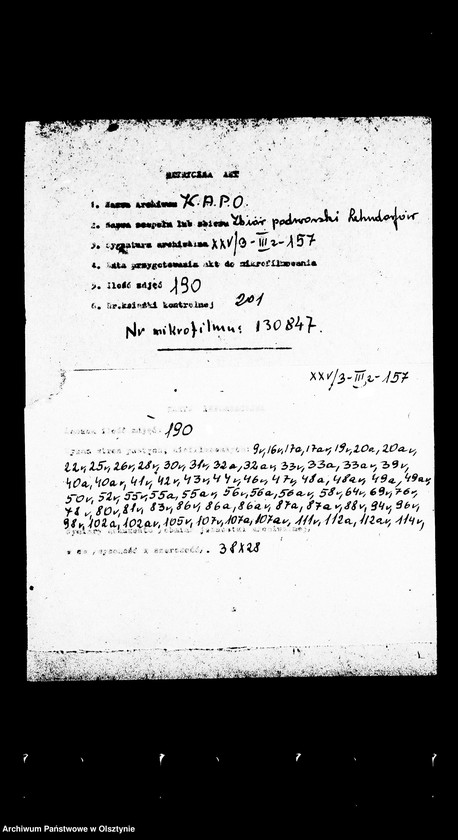 METRYCZKA AKT
1. Nazwa Archiwum K.A.P.O.
2. Nazwa zespołu lub zbioru Zbiór podworski Lehndorfów
3. Sygnatura archiwalna XXV/3-III,2-157
4. Data przygotowania akt do mikrofilmowania
5. Ilość zdjęć 190
6. Nr.książki kontrolnej 201
Nr mikrofilmu: 130847.
XXV/3-III,2-157
ilość zdjęć. 190
stron pustych, 9v,16v,17a,17av,19v,20a,20av,
22v,25v,26v,28v,30v,31v,32a,32av,33v,33a,33av,39v,
40a,40av,41v,42v,43v,44v,46v,47v,48a,48av,49a,49av,
50v,52v,55v,55a,55av,56v,56a,56av,58v,64v,69v,76v,
78v,80v,81v,83v,86v,86a,86av,87a,87av,88v,94v,96v,
98v,102a,102av,105v,107v,107a,107av,111v,112a,112av,114v,
w cm, wysokość x szerokość,. 38x28
Archiwum Państwowe w Olsztynie